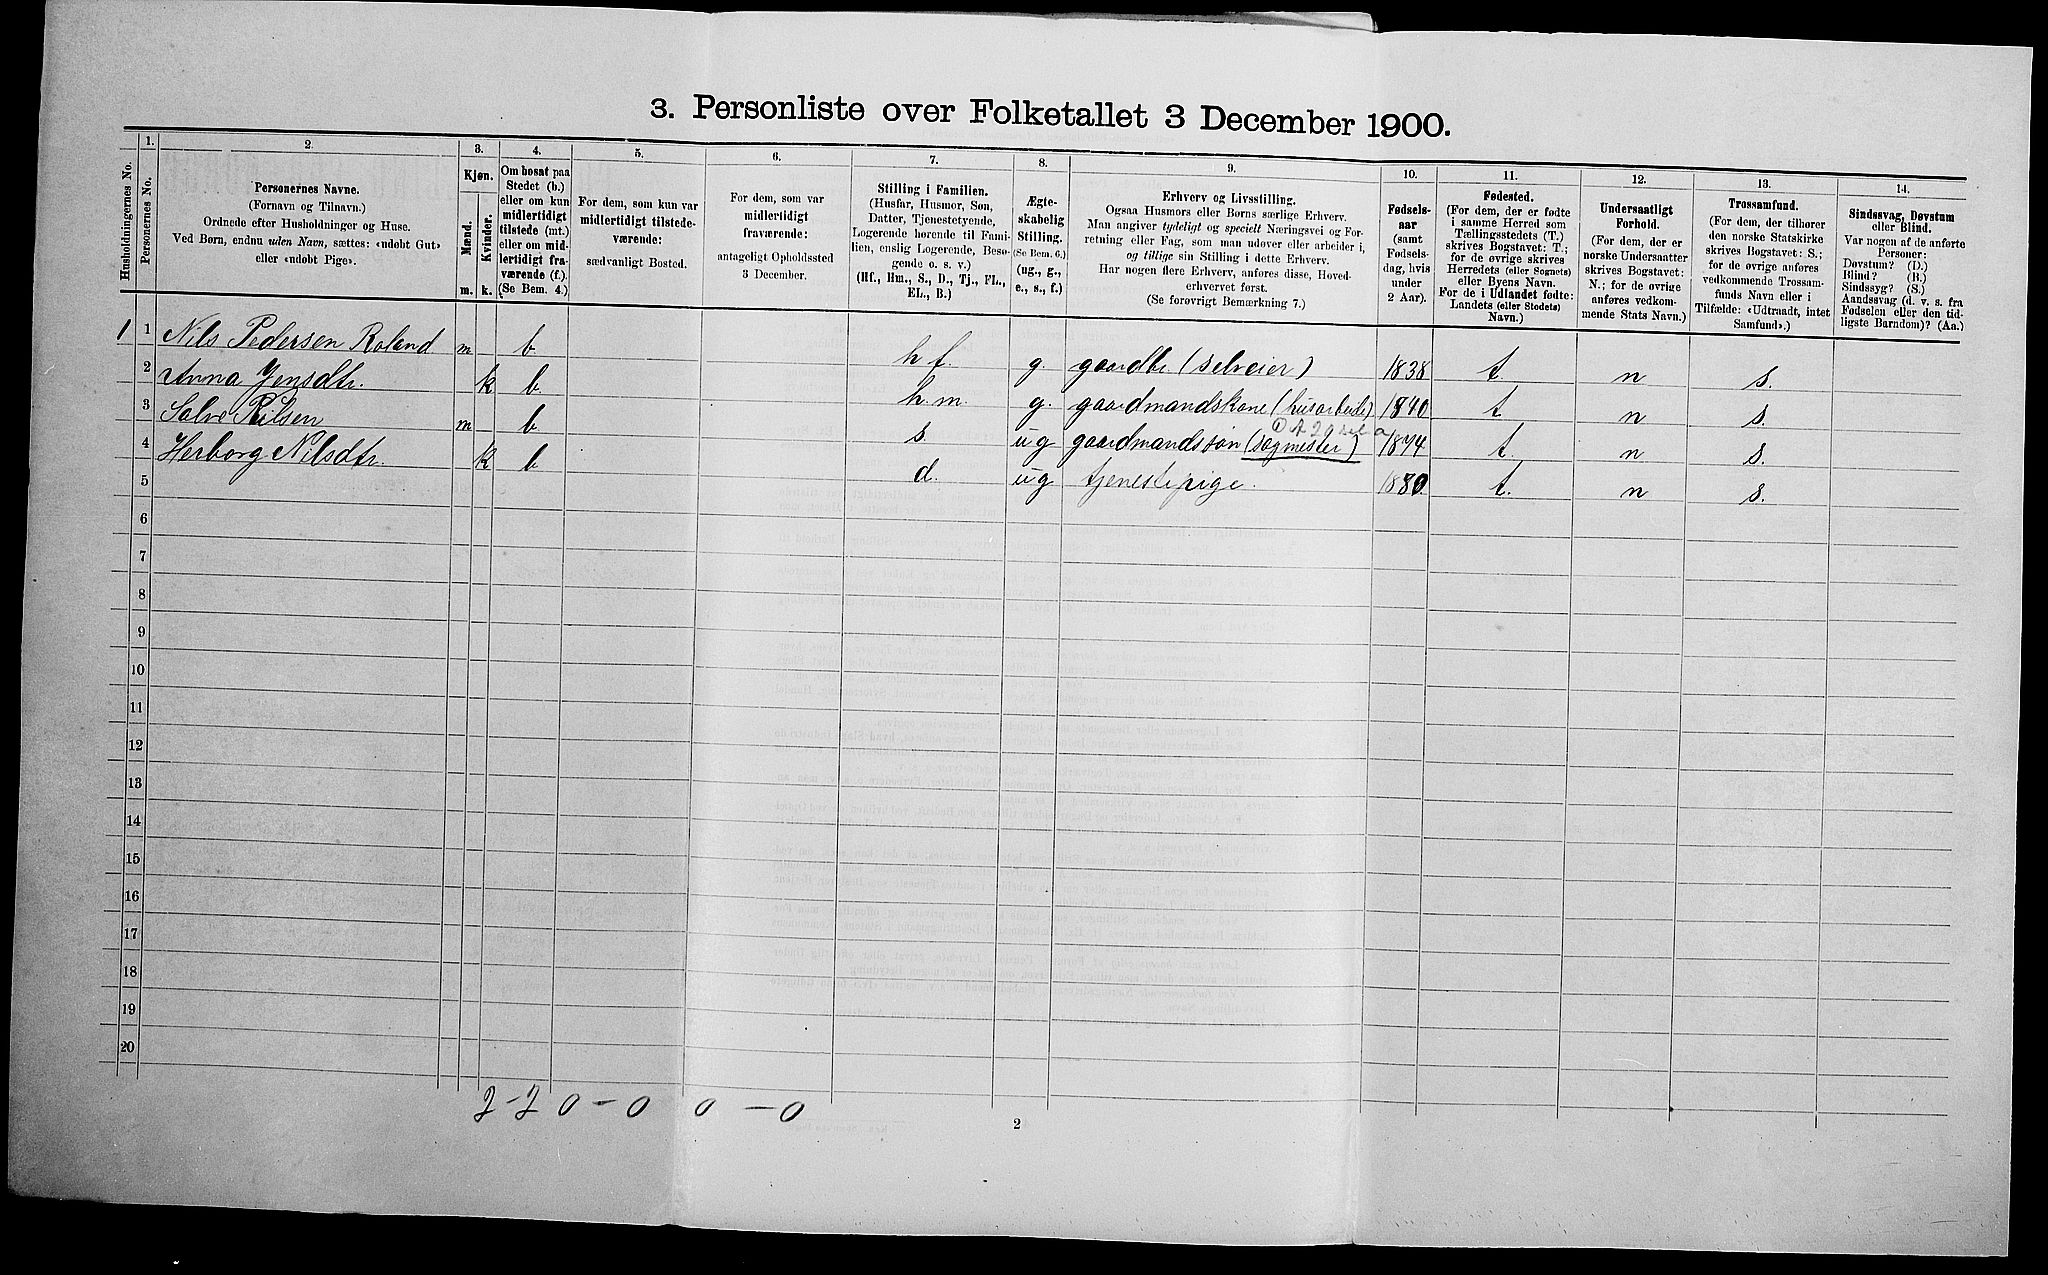 3. Personliste over Folketallet 3 December 1900.
1. 2. 3. 4. 5. 6. 7. 8. 9. 10. 11. 12. 13. 14.
Husholdningernes No.
Personernes No.
Personernes Navne.
(Fornavn og Tilnavn.)
Ordnede efter Husholdninger og Huse.
Ved Børn, endnu uden Navn, sættes: «udøbt Gut»
eller «udøbt Pige».
Kjøn.
Mænd.
Kvinder.
m. k.
Om bosat paa
Stedet (b.)
eller om kun
midlertidigt
tilstede (mt.)
eller om mid-
lertidigt fra-
værende (f.).
(Se Bem. 4.)
For dem, som kun var
midlertidigt tilstede-
værende:
sædvanligt Bosted.
For dem, som var
midlertidigt
fraværende:
antageligt Opholdssted
3 December.
Stilling i Familien.
(Husfar, Husmor, Søn,
Datter, Tjenestetyende,
Logerende hørende til Fami-
lien, enslig Logerende, Besø-
gende o. s. v.)
(Hf., Hm., S., D., Tj., FL.,
EL., B.)
Ægte-
skabelig
Stilling.
(Se Bem. 6.)
(ug., g.,
e., s., f.)
Erhverv og Livsstilling.
Ogsaa Husmors eller Børns særlige Erhverv.
Man angiver tydeligt og specielt Næringsvei og For-
retning eller Fag, som man udøver eller arbeider i,
og tillige sin Stilling i dette Erhverv.
Har nogen flere Erhverv, anføres disse, Hoved-
erhvervet først.
(Se forøvrigt Bemærkning 7.)
Fødsels-
aar
(samt
Fødsels-
dag, hvis
under
2 Aar).
Fødested.
(For dem, der er fødte
i samme Herred som
Tællingsstedets (T.)
skrives Bogstavet: T.;
for de øvrige skrives
Herredets (eller Sognets)
eller Byens Navn.
For de i Udlandet fødte:
Landets (eller Stedets)
Navn.)
Undersaatligt
Forhold.
(For dem, der er
norske Undersaatter
skrives Bogstavet:
N.; for de øvrige
anføres vedkom-
mende Stats Navn.)
Trossamfund.
(For dem, der tilhører
den norske Statskirke
skrives Bogstavet: S.;
for de øvrige anføres
vedkommende Trossam-
funds Navn eller i
Tilfælde: «Udtraadt, intet
Samfund».)
Sindssvag, Døvstum
eller Blind.
Var nogen af de anførte
Personer:
Døvstum? (D.)
Blind? (B.)
Sindssyg? (S.)
Aandssvag (d. v. s. fra
Fødselen eller den tid-
ligste Barndom)? (Aa.)
1 1 Nils Pedersen Roland m b hf. g. gaardbr. (selveier) 1838 t. n s.
2 Anna Jensdtr. k b h.m. g. gaardmandskone (husarbeide) 1840 t n s.
3 Salve Nilsen m b s. ug gaardmandssøn (sagmester) 1874 t. n s.
4 Herborg Nilsdtr. k b d. ug tjenestepige. 1880 t. n s.
5
6
7
8
9
10
11
12
13
14
15
16
17
18
19
20
2-2 0-0 0-0
2